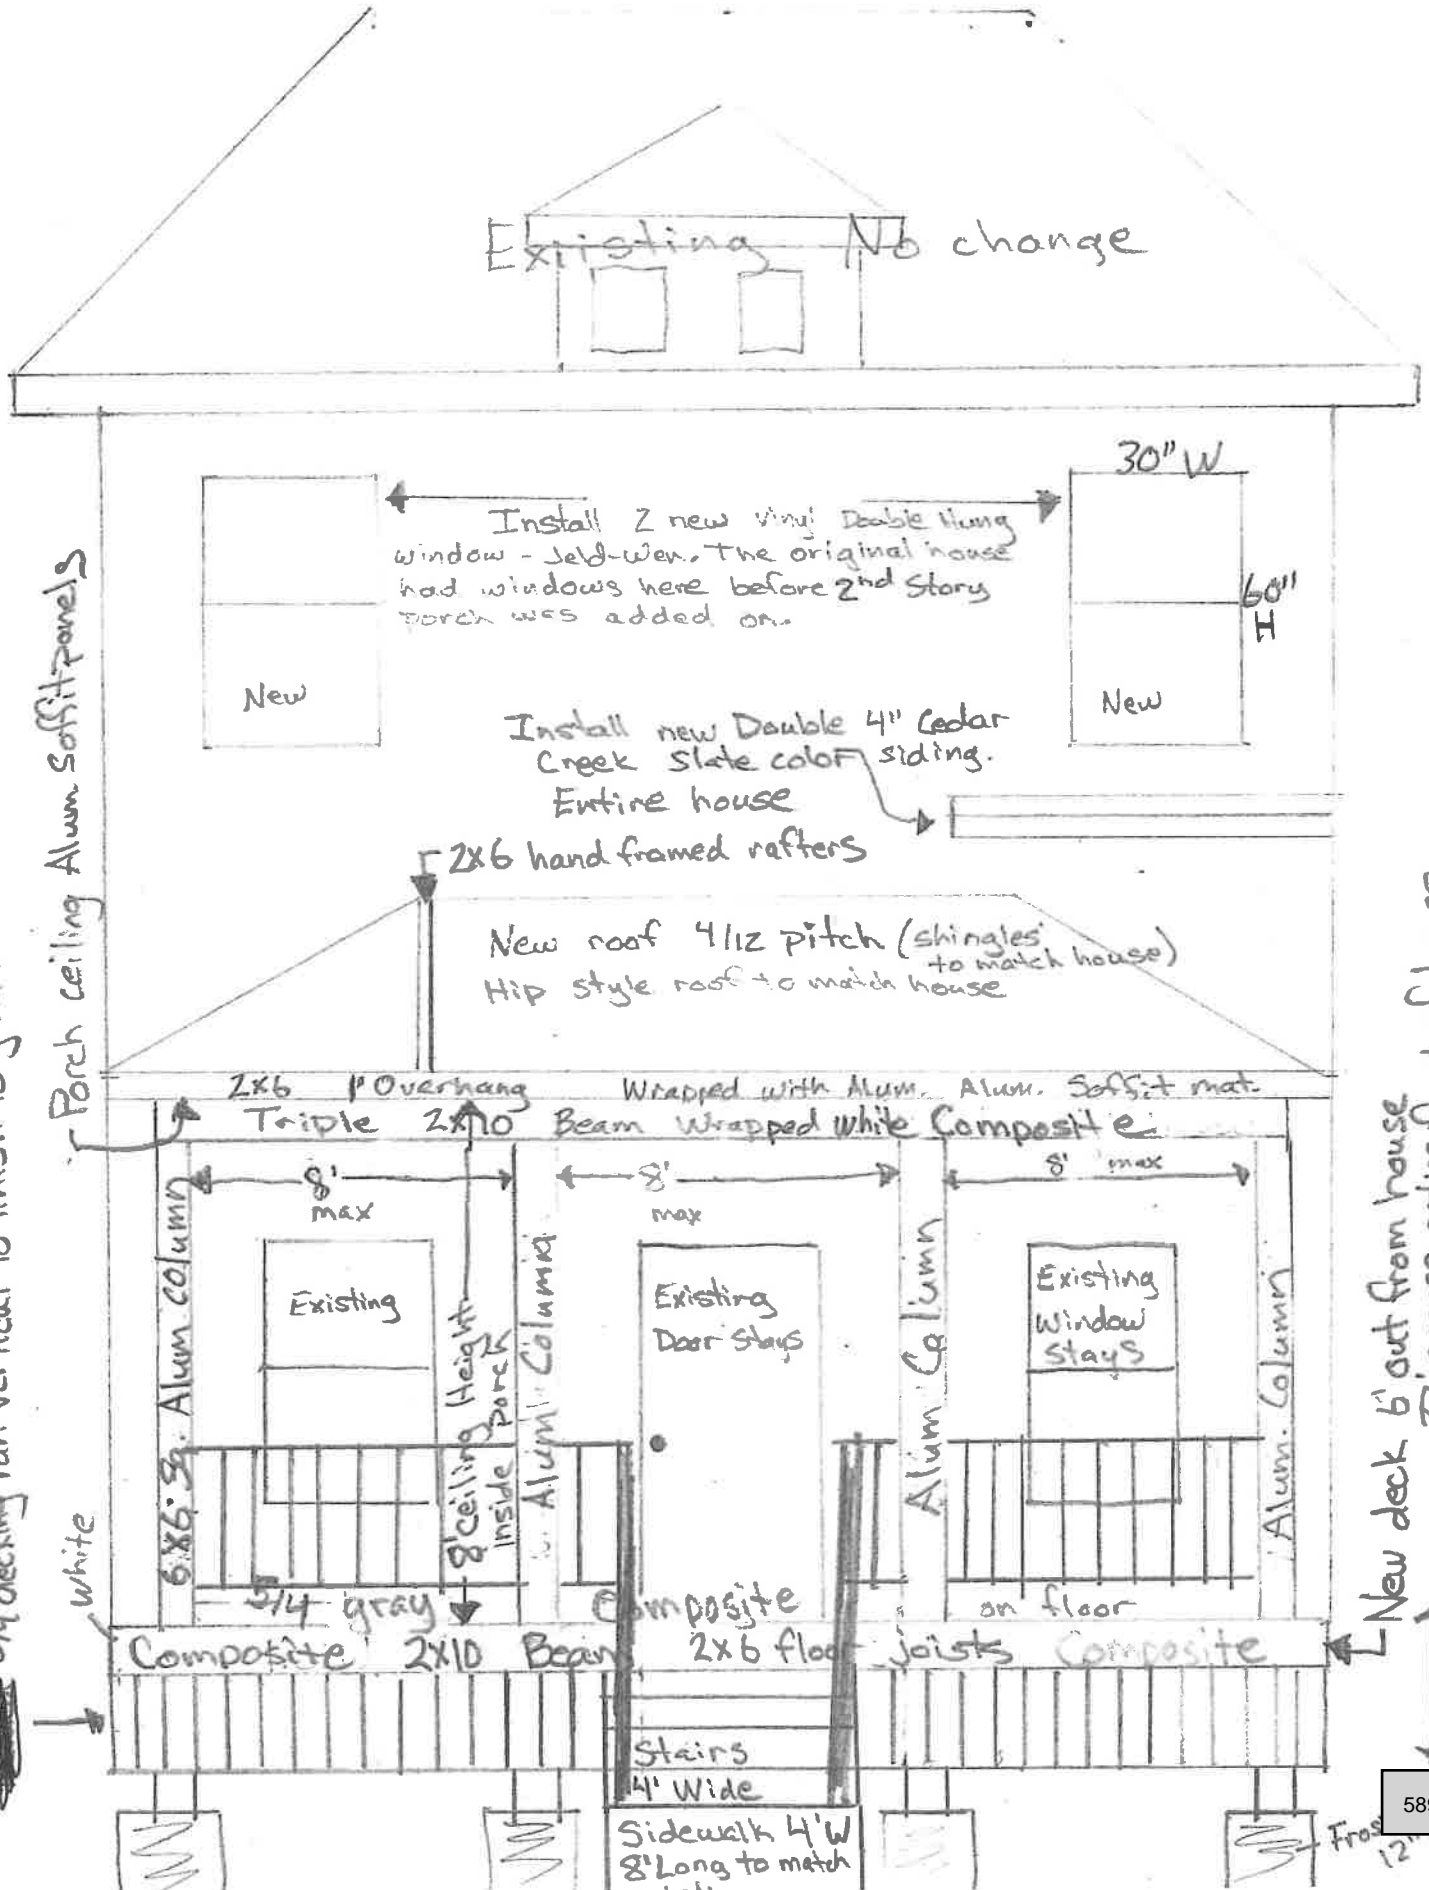 Existing No change
30" W
Install 2 new vinyl Double Hung
window - Jeld-Wen. The original house
had windows here before 2nd Story
porch was added on.
60"
H
New
New
Install new Double 4" Cedar
Creek Slate color siding.
Entire house
2x6 hand framed rafters
New roof 4/12 pitch (shingles
to match house)
Hip style roof to match house
Porch Ceiling Alum Soffit panels
2x6 1' Overhang Wrapped with Alum. Alum. Soffit mat.
Triple 2x10 Beam Wrapped white Composite
8'
max
8'
max
8' max
6x6 Sq. Alum column
Existing
8' Ceiling Height
Inside porch
Alum Column
Existing
Door Stays
Alum Column
Existing
Window
Stays
Alum. Column
5/4 gray Composite on floor
White
Composite 2x10 Beam 2x6 floor joists Composite
New deck 6' out from house
5/4 decking ran vertical to finish
Stairs
4' Wide
Sidewalk 4'W
8' Long to match
12"